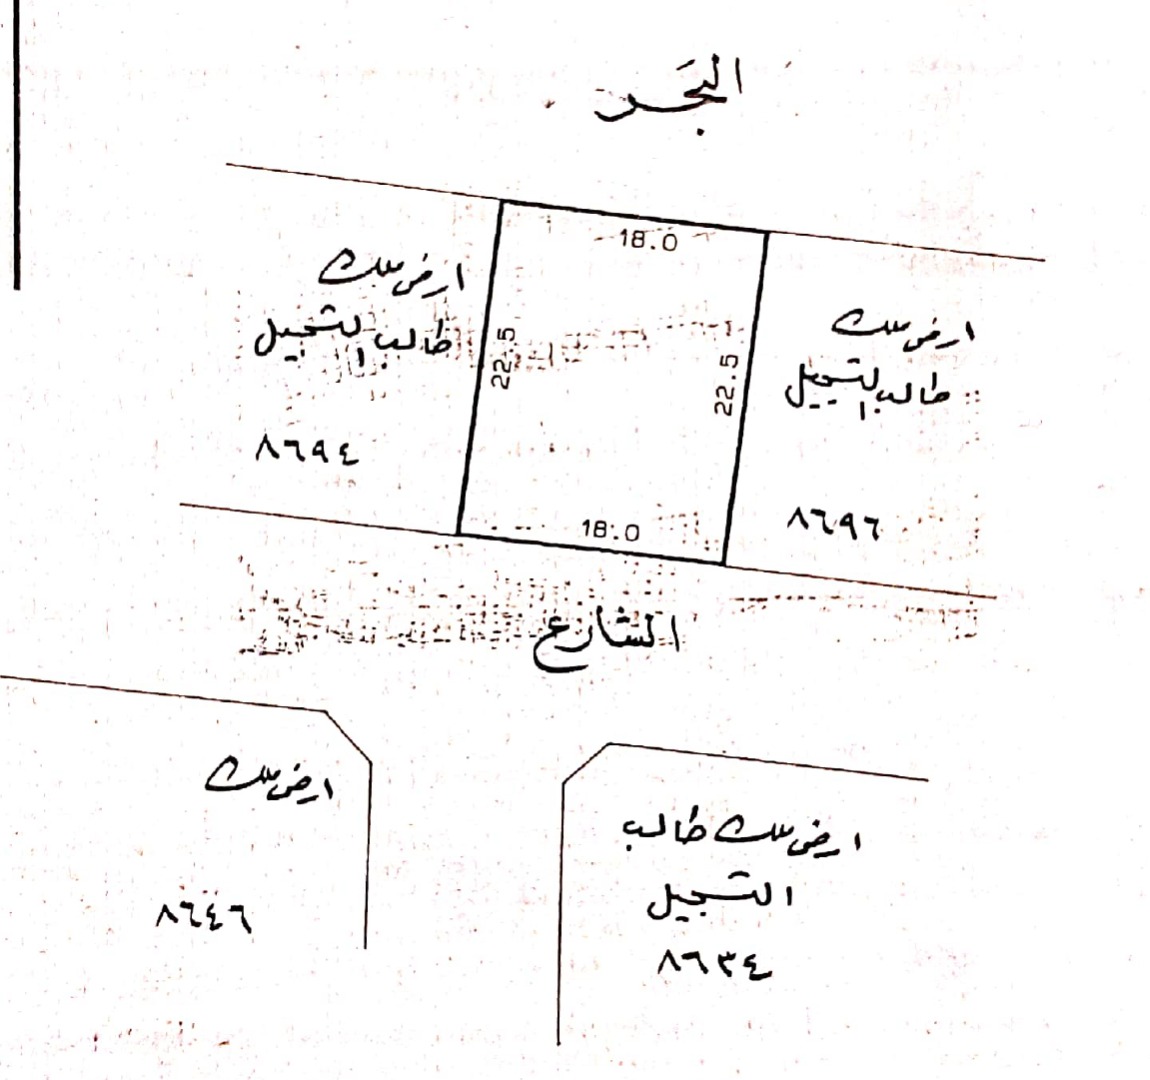 البحر
18.0
ارض ملك
طالب التسجيل
٨٦٩٤
22.5
22.5
ارض ملك
طالب التسجيل
٨٦٩٦
18.0
الشارع
ارض ملك
٨٦٤٦
ارض ملك طالب
التسجيل
٨٦٣٤